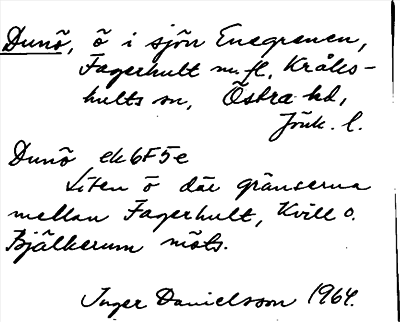 Dunö, ö i sjön Enegrenen,
Fagerhult m. fl., Kråks-
hults sn, Östra hd,
Jönk. l.
Dunö ek 6F5e
Liten ö där gränserna
mellan Fagerhult, Kvill o.
Bjälkerum möts.
Inger Danielsson 1964.